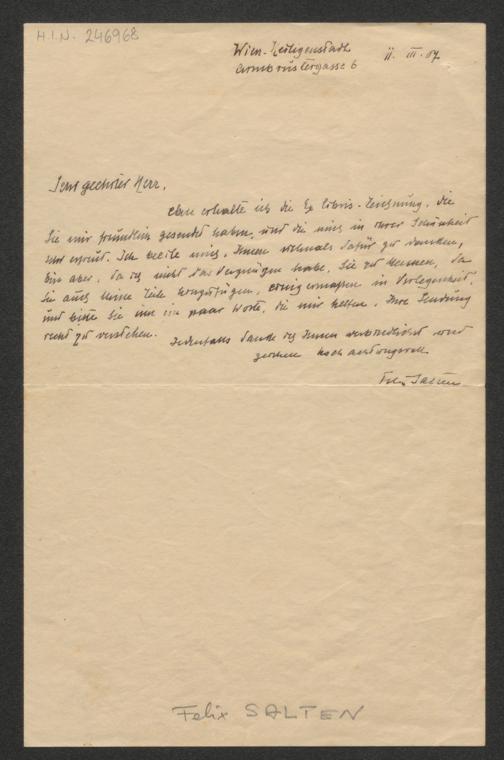 H.I.N. 246968
Wien-Heiligenstadt
Armbrustergasse 6
II. III. 07
Sehr geehrter Herr,
eben erhalte ich die Ex libris-Zeichnung, die
Sie mir freundlich gesendet haben, und die mich in ihrer Schönheit
sehr erfreut. Ich beeile mich, Ihnen vielmals dafür zu danken,
bin aber, da ich nicht das Vergnügen habe, Sie zu kennen, da
Sie auch keine Zeile hinzufügen, einigermassen in Verlegenheit,
und bitte Sie um ein paar Worte, die mir helfen, Ihre Sendung
recht zu verstehen.
Jedenfalls danke ich Ihnen verbindlichst und
zeichne hochachtungsvoll
Felix Salten
Felix SALTEN